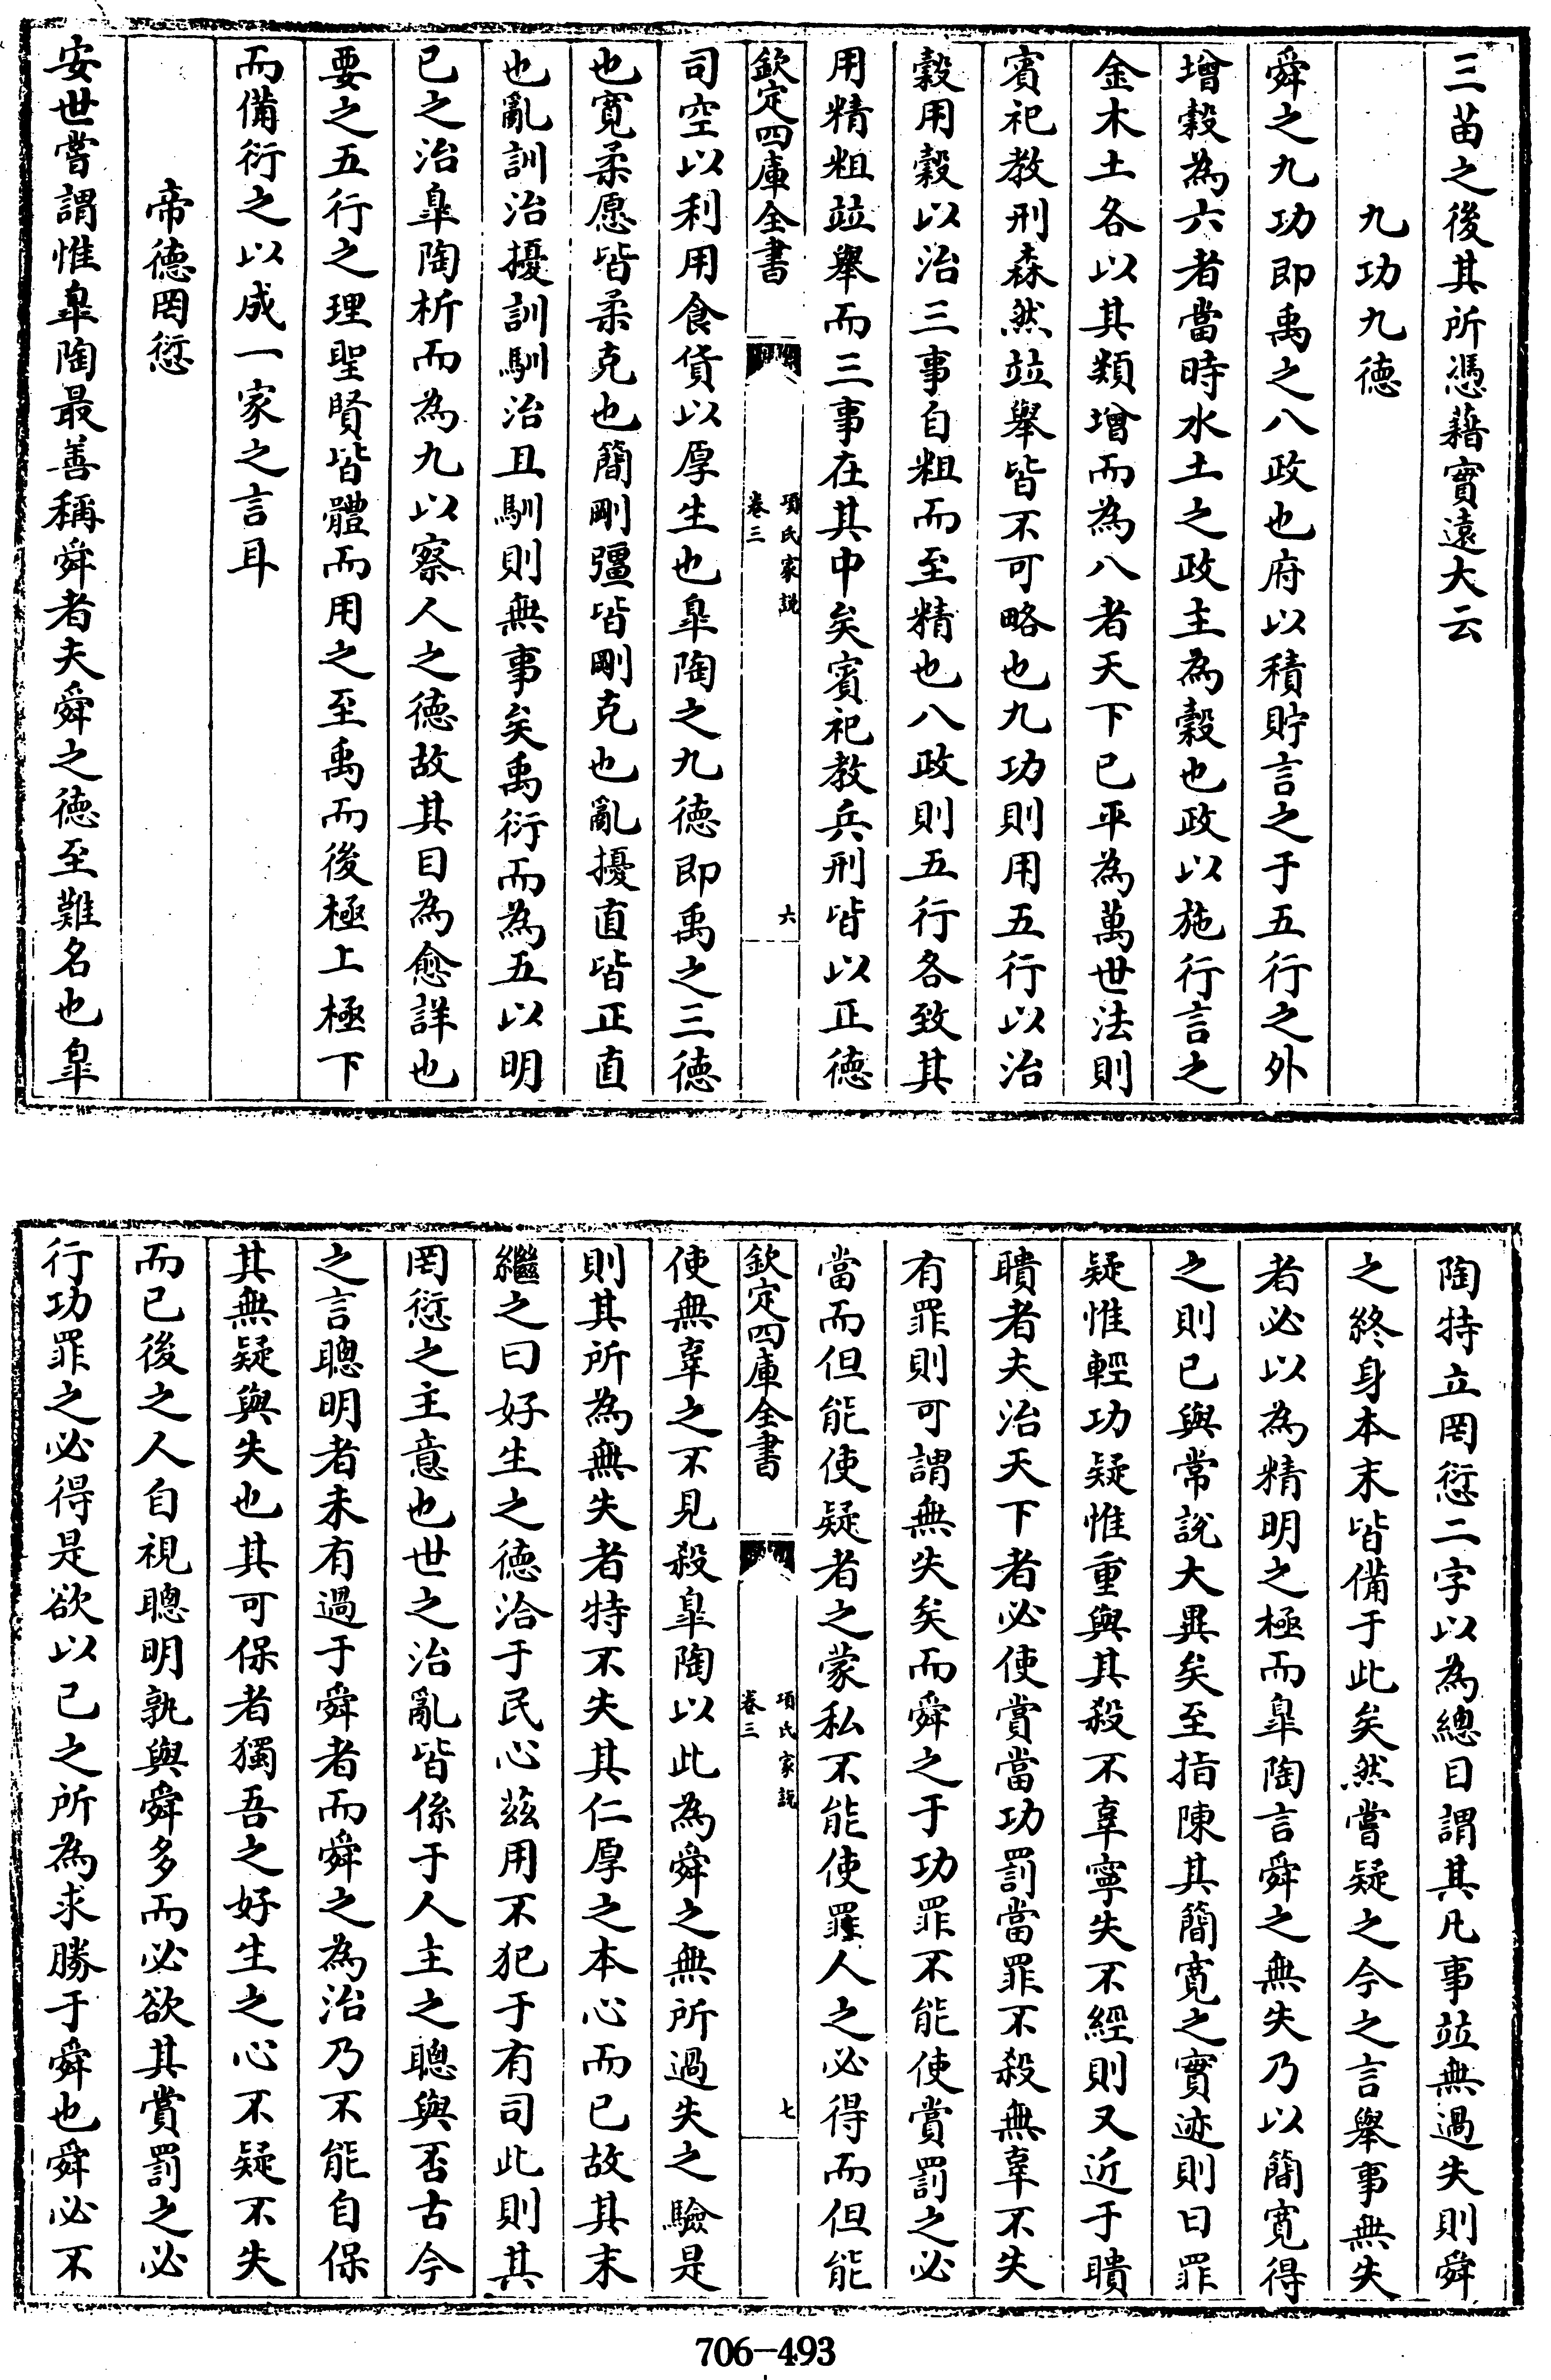 三苗之後其所憑藉實遠大云
九功九德
舜之九功即禹之八政也府以積貯言之于五行之外
增穀為六者當時水土之政主為穀也政以施行言之
金木土各以其類增而為八者天下已平為萬世法則
賓祀教刑森然竝舉皆不可略也九功則用五行以治
穀用穀以治三事自粗而至精也八政則五行各致其
用精粗竝舉而三事在其中矣賓祀教兵刑皆以正德
欽定四庫全書
項氏家說
卷三
六
司空以利用食貨以厚生也臯陶之九德即禹之三德
也寛柔愿皆柔克也簡剛彊皆剛克也亂擾直皆正直
也亂訓治擾訓馴治且馴則無事矣禹衍而為五以明
已之治臯陶析而為九以察人之德故其目為愈詳也
要之五行之理聖賢皆體而用之至禹而後極上極下
而備衍之以成一家之言耳
帝德罔愆
安世嘗謂惟臯陶最善稱舜者夫舜之德至難名也臯
陶特立罔愆二字以為總目謂其凡事竝無過失則舜
之終身本末皆備于此矣然嘗疑之今之言舉事無失
者必以為精明之極而臯陶言舜之無失乃以簡寛得
之則已與常說大異矣至指陳其簡寛之實迹則曰罪
疑惟輕功疑惟重與其殺不辜寧失不經則又近于聵
聵者夫治天下者必使賞當功罰當罪不殺無辜不失
有罪則可謂無失矣而舜之于功罪不能使賞罰之必
當而但能使疑者之蒙私不能使罪人之必得而但能
欽定四庫全書
項氏家說
卷三
七
使無辜之不見殺臯陶以此為舜之無所過失之驗是
則其所為無失者特不失其仁厚之本心而已故其末
繼之曰好生之德洽于民心茲用不犯于有司此則其
罔愆之主意也世之治亂皆係于人主之聰與否古今
之言聰明者未有過于舜者而舜之為治乃不能自保
其無疑與失也其可保者獨吾之好生之心不疑不失
而已後之人自視聰明孰與舜多而必欲其賞罰之必
行功罪之必得是欲以已之所為求勝于舜也舜必不
706-493